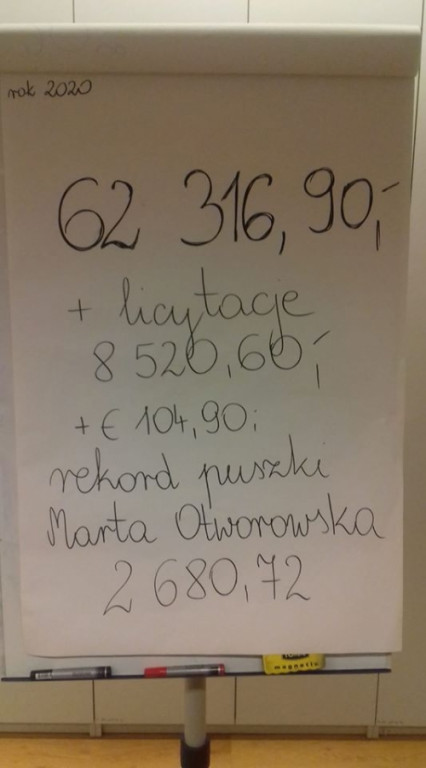 rok 2020
62 316,90,-
+ licytacje
8 520,60,-
+ € 104,90,-
rekord puszki
Marta Otworowska
2 680,72
magnetic